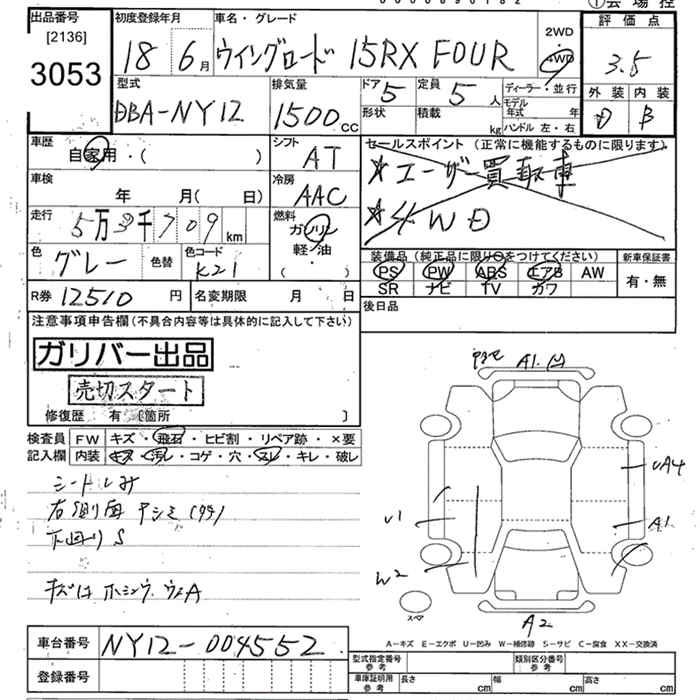 ①会場控
出品番号
[2136]
3053
初度登録年月
18 6月
車名・グレード
ウイングロード 15RX FOUR
2WD
4WD
評価点
3.5
外装 内装
D B
型式
DBA-NY12
排気量
1500cc
ドア 5
形状
定員 5人
積載 kg
ディーラー・並行
モデル年式 年
ハンドル 左・右
車歴
自家用・( )
シフト
AT
セールスポイント (正常に機能するものに限ります)
★ユーザー買取車
★4WD
車検
年 月( 日)
冷房
AAC
走行
5万3千709km
燃料
ガソリン
軽・油
( )
色
グレー
色替
色コード
K21
装備品 (純正品に限り○をつけてください)
PS PW ABS エアB AW
SR ナビ TV カワ
新車保証書
有・無
R券 12510円
名変期限 月 日
後日品
注意事項申告欄(不具合内容等は具体的に記入して下さい)
ガリバー出品
売切スタート
修復歴 有〔箇所 〕
検査員 FW キズ・飛石・ヒビ割・リペア跡・×要
記入欄 内装 キズ・汚レ・コゲ・穴・スレ・キレ・破レ
シートしみ
下回り S
A1
UA4
U1
A1
W2
スペア
A2
A-キズ E-エクボ U-凹み W-補修跡 S-サビ C-腐食 XX-交換済
車台番号 NY12-004552
登録番号
型式指定番号 参考
類別区分番号 参考
車庫証明用 参考
長さ cm 幅 cm 高さ cm